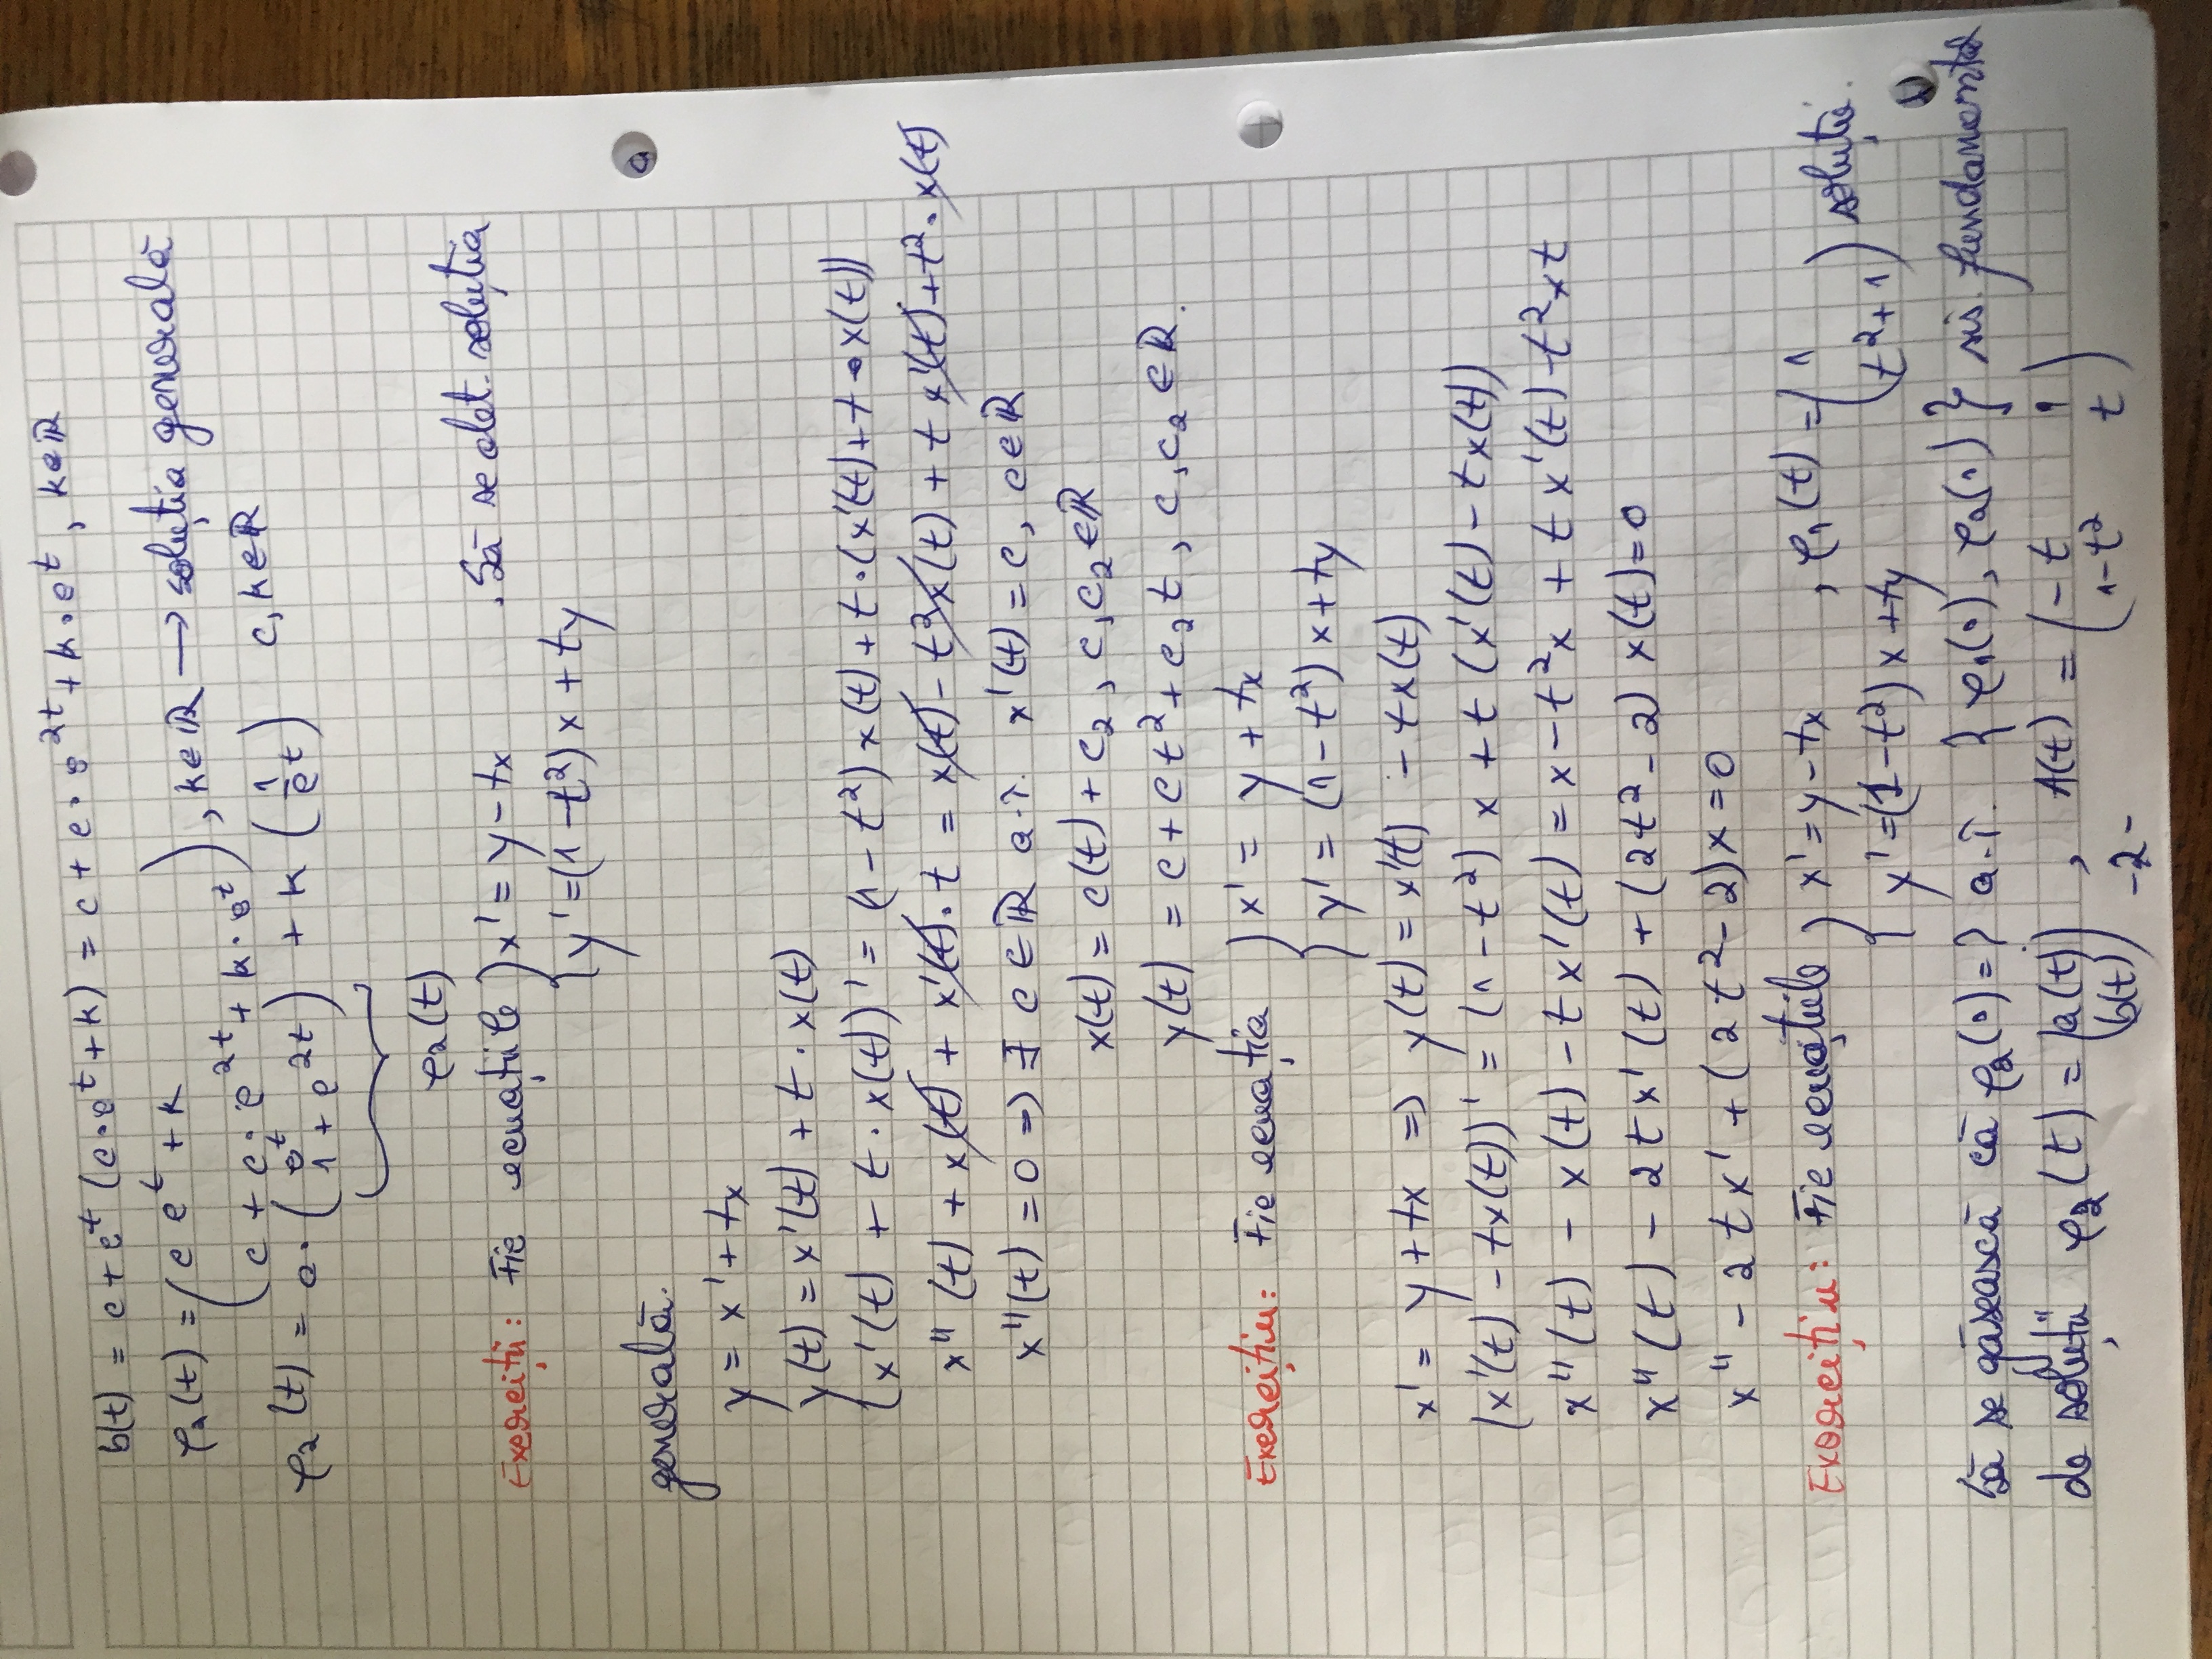 b(t) = c + e^t (c·e^t + k) = c + c·e^2t + k·e^t, k∈ℝ
φ₂(t) = (c e^t + k
c + c·e^2t + k·e^t), k∈ℝ → soluția generală
φ₂(t) = c·(e^t
1 + e^2t) + k (1
e^t) c, k∈ℝ
φ₂(t)
Exerciții: Fie ecuațiile { x' = y - tx . Să se det. soluția
y' = (1 - t²) x + ty
generală.
y = x' + tx
y(t) = x'(t) + t · x(t)
(x'(t) + t · x(t))' = (1 - t²) x(t) + t·(x'(t) + t · x(t))
x''(t) + x(t) + x'(t)·t = x(t) - t² x(t) + t x'(t) + t² · x(t)
x''(t) = 0 => ∃ c ∈ ℝ a.î. x'(t) = c, c∈ℝ
x(t) = c(t) + c₂, c, c₂ ∈ℝ
y(t) = c + ct² + c₂t, c, c₂ ∈ ℝ.
Exercițiu: Fie ecuația { x' = y + tx
y' = (1 - t²) x + ty
x' = y + tx => y(t) = x'(t) - tx(t)
(x'(t) - tx(t))' = (1 - t²) x + t (x'(t) - tx(t))
x''(t) - x(t) - tx'(t) = x - t²x + tx'(t) - t²xt
x''(t) - 2tx'(t) + (2t² - 2) x(t) = 0
x'' - 2tx' + (2t² - 2)x = 0
Exercițiu: Fie ecuațiile { x' = y - tx , φ₁(t) = (1
y' = (1 - t²) x + ty t² + 1) soluție.
Să se găsească că φ₂(·) = ? a.î. {φ₁(·), φ₂(·)} sis. fundamental
de soluții φ₂(t) = (a(t)
b(t)) , A(t) = (-t 1
1-t² t)
-2-